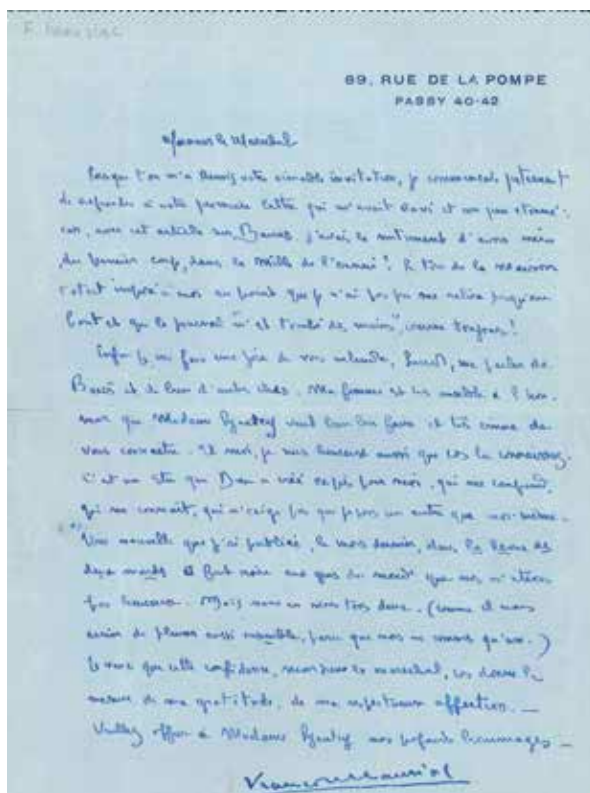 F. Mauriac
89, RUE DE LA POMPE
PASSY 40-42
Monsieur le Maréchal
Lorsque l'on m'a remis votre aimable invitation, je commençais
de répondre à votre première lettre qui m'avait ravi et un peu étonné :
car, avec cet article sur Barrès, j'avais le sentiment d'avoir
du premier coup, dans le mille de l'ennui ! Le
s'était imposé à moi au point que je n'ai pas pu me
bout et que le pouvait "m'est tombé des mains", comme toujours !
Enfin je me fais une joie de vous entendre, lundi, me parler de
Barrès et de bien d'autres choses. Ma femme est très sensible à l'hon-
neur que Madame Lyautey veut bien lui faire et très émue de
vous connaître. Et moi, je suis heureux aussi que vous la connaissiez.
C'est un être que Dieu a créé exprès pour moi, qui me
qui me connaît, qui n'exige pas que je sois un autre que moi-même.
Une nouvelle que j'ai publiée, le mois dernier, dans la Revue des
deux mondes a fait croire aux gens du monde que nous n'étions
pas heureux. Mais nous en rions tous deux. (comme il nous
arrive de pleurer aussi ensemble, parce que nous ne sommes qu'un.)
Je veux que cette confidence, monsieur le maréchal, vous donne la
mesure de ma gratitude, de ma respectueuse affection. —
Veuillez offrir à Madame Lyautey mes profonds hommages —
François Mauriac